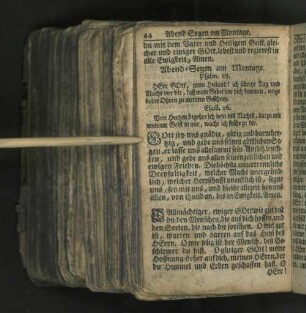 44 Abend-Segen am Montage.
du mit dem Vater und Heiligem Geist, gleicher
und einiger GOtt, lebest und regierest in
alle Ewigkeit, Amen.
Abend-Segen am Montage.
Psalm. 88.
HErr GOtt, mein Heiland! ich schrey Tag und
Nacht vor dir, laß mein Gebet vor dich kommen, neige
deine Ohren zu meinem Geschrey.
Esai. 26.
Von Hertzen begehre ich dein des Nachts, darzu mit
meinem Geist in mir, wache ich frühe zu dir.
GOtt sey uns gnädig, gütig und barmhertzig,
und gebe uns seinen göttlichen Segen,
er lasse uns allesammt sein Antlitz
und gebe uns allen seinen und
ewigen Frieden. Die hochste unzertrennliche
Dreyfaltigkeit, welcher Macht unergründlich,
welcher Herrschafft unendlich ist, segne
uns, sey mit uns, und bleibe allezeit bey uns
allen, von nun an, bis in Ewigkeit, Amen.
Allmächtiger, ewiger GOtt wie gut bist
du den Menschen, die auf dich hoffen, und
den Seelen, die nach dir forschen. O wie gut
ist, warten und harren auf das Heil des
HErrn. O wie selig ist der Mensch, deß
du bist. O gütiger GOtt! meine
Hoffnung stehet auf dich, meinen HErrn, der
du Himmel und Erden geschaffen hast. O
HErr!